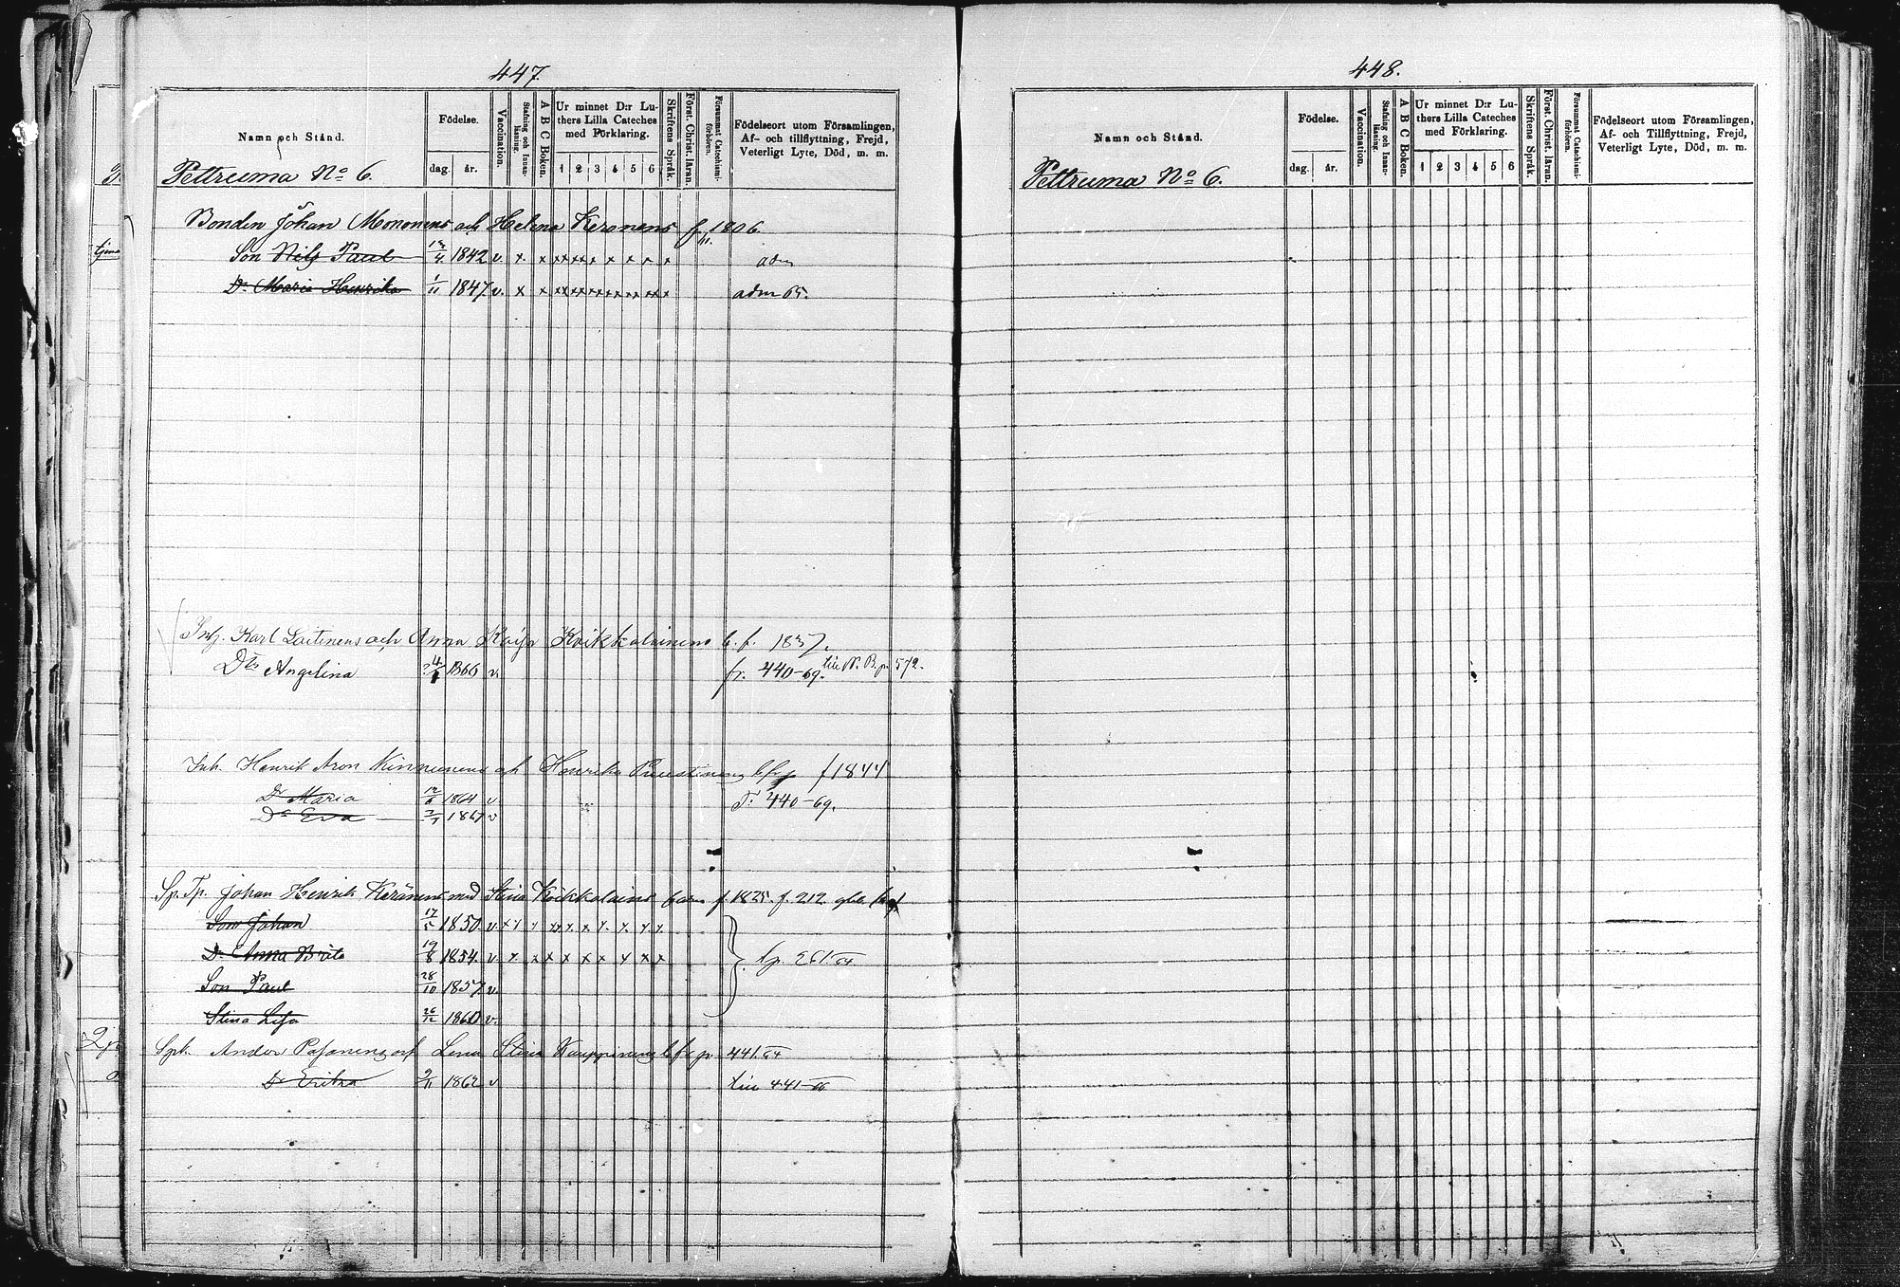 447.
Namn och Stånd.
Födelse.
dag. år.
Vaccination.
Stafning och Innanläsning.
A B C Boken.
Ur minnet D:r Luthers Lilla Cateches med Förklaring.
1 2 3 4 5 6
Skriftens Språk.
Först. Christ. läran.
Försummat Catechismiförhören.
Födelseort utom Församlingen,
Af- och tillflyttning, Frejd,
Veterligt Lyte, Död, m. m.
Pettruma No 6.
Bonden Johan Mononens och Helena Keronens f. 1806.
Son Nils Paul 1842 v. x x x x x x x x x x adm
Dr Maria Henrika 1/11 1847 v. x x x x x x x x x x adm 65.
Inh. Karl Laitinens och Anna Kaisa Kvikkalainens b. f. 1837.
Dtr Angelina 1866 v. fr. 440-69. till N. B. p. 572.
Inh. Henrik Aron Kinnunens och Henrika Puustinens f 1844
Dr Maria 12/6 1864 v fr. 440-69.
Dr Eva 1867 v
Sp. Tp. Johan Henrik Keränens med Stina Kikkalains barn f. 1825. f. 212
Son Johan 17/5 1850 v. x x x x x x x x x
Dr Anna Brita 19/8 1854 v. x x x x x x x x x 261.64
Son Paul 28/10 1857 v.
Stina Lisa 26/12 1860 v.
Anders Pasanens och Lena Stina Kauppinens 441.64
Dr Erika 9/11 1862 v till 441-66
448.
Namn och Stånd.
Födelse.
dag. år.
Vaccination.
Stafning och Innanläsning.
A B C Boken.
Ur minnet D:r Luthers Lilla Cateches med Förklaring.
1 2 3 4 5 6
Skriftens Språk.
Först. Christ. läran.
Försummat Catechismiförhören.
Födelseort utom Församlingen,
Af- och Tillflyttning, Frejd,
Veterligt Lyte, Död, m. m.
Pettruma No 6.